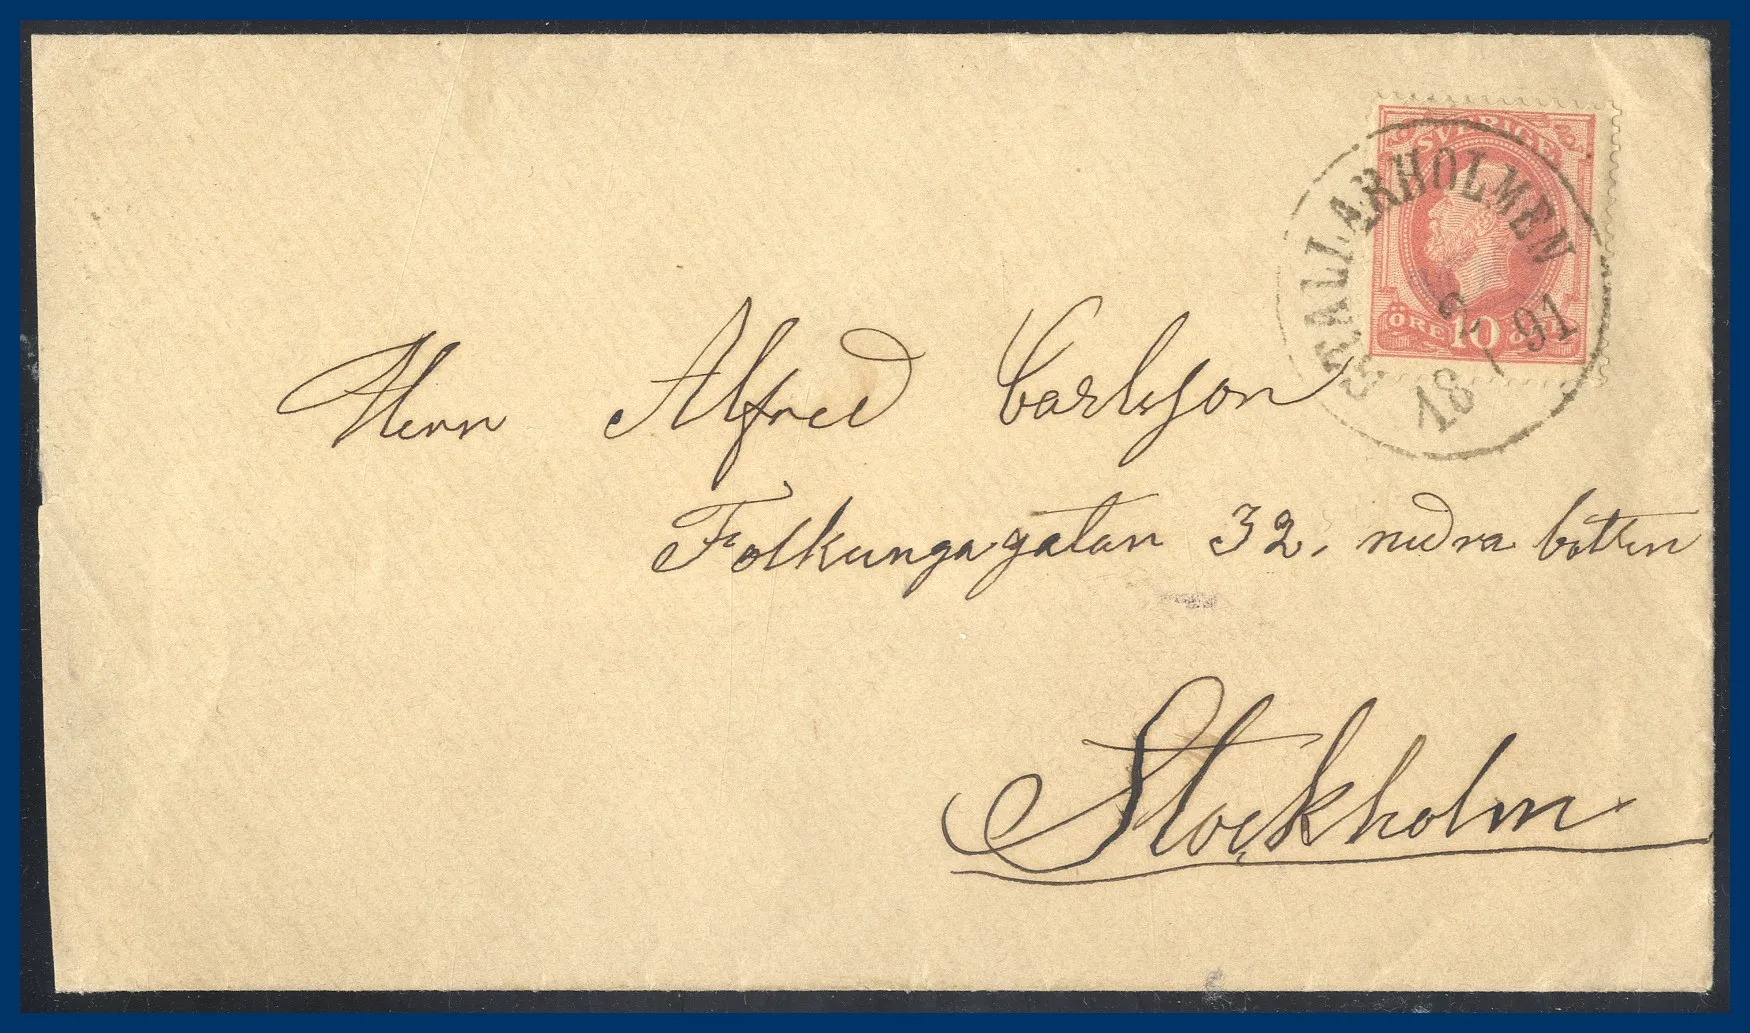 SVERIGE
ÖRE 10
STALLARHOLMEN
18 91
Herr Alfred Carlsson
Folkungagatan 32, nedra botten
Stockholm